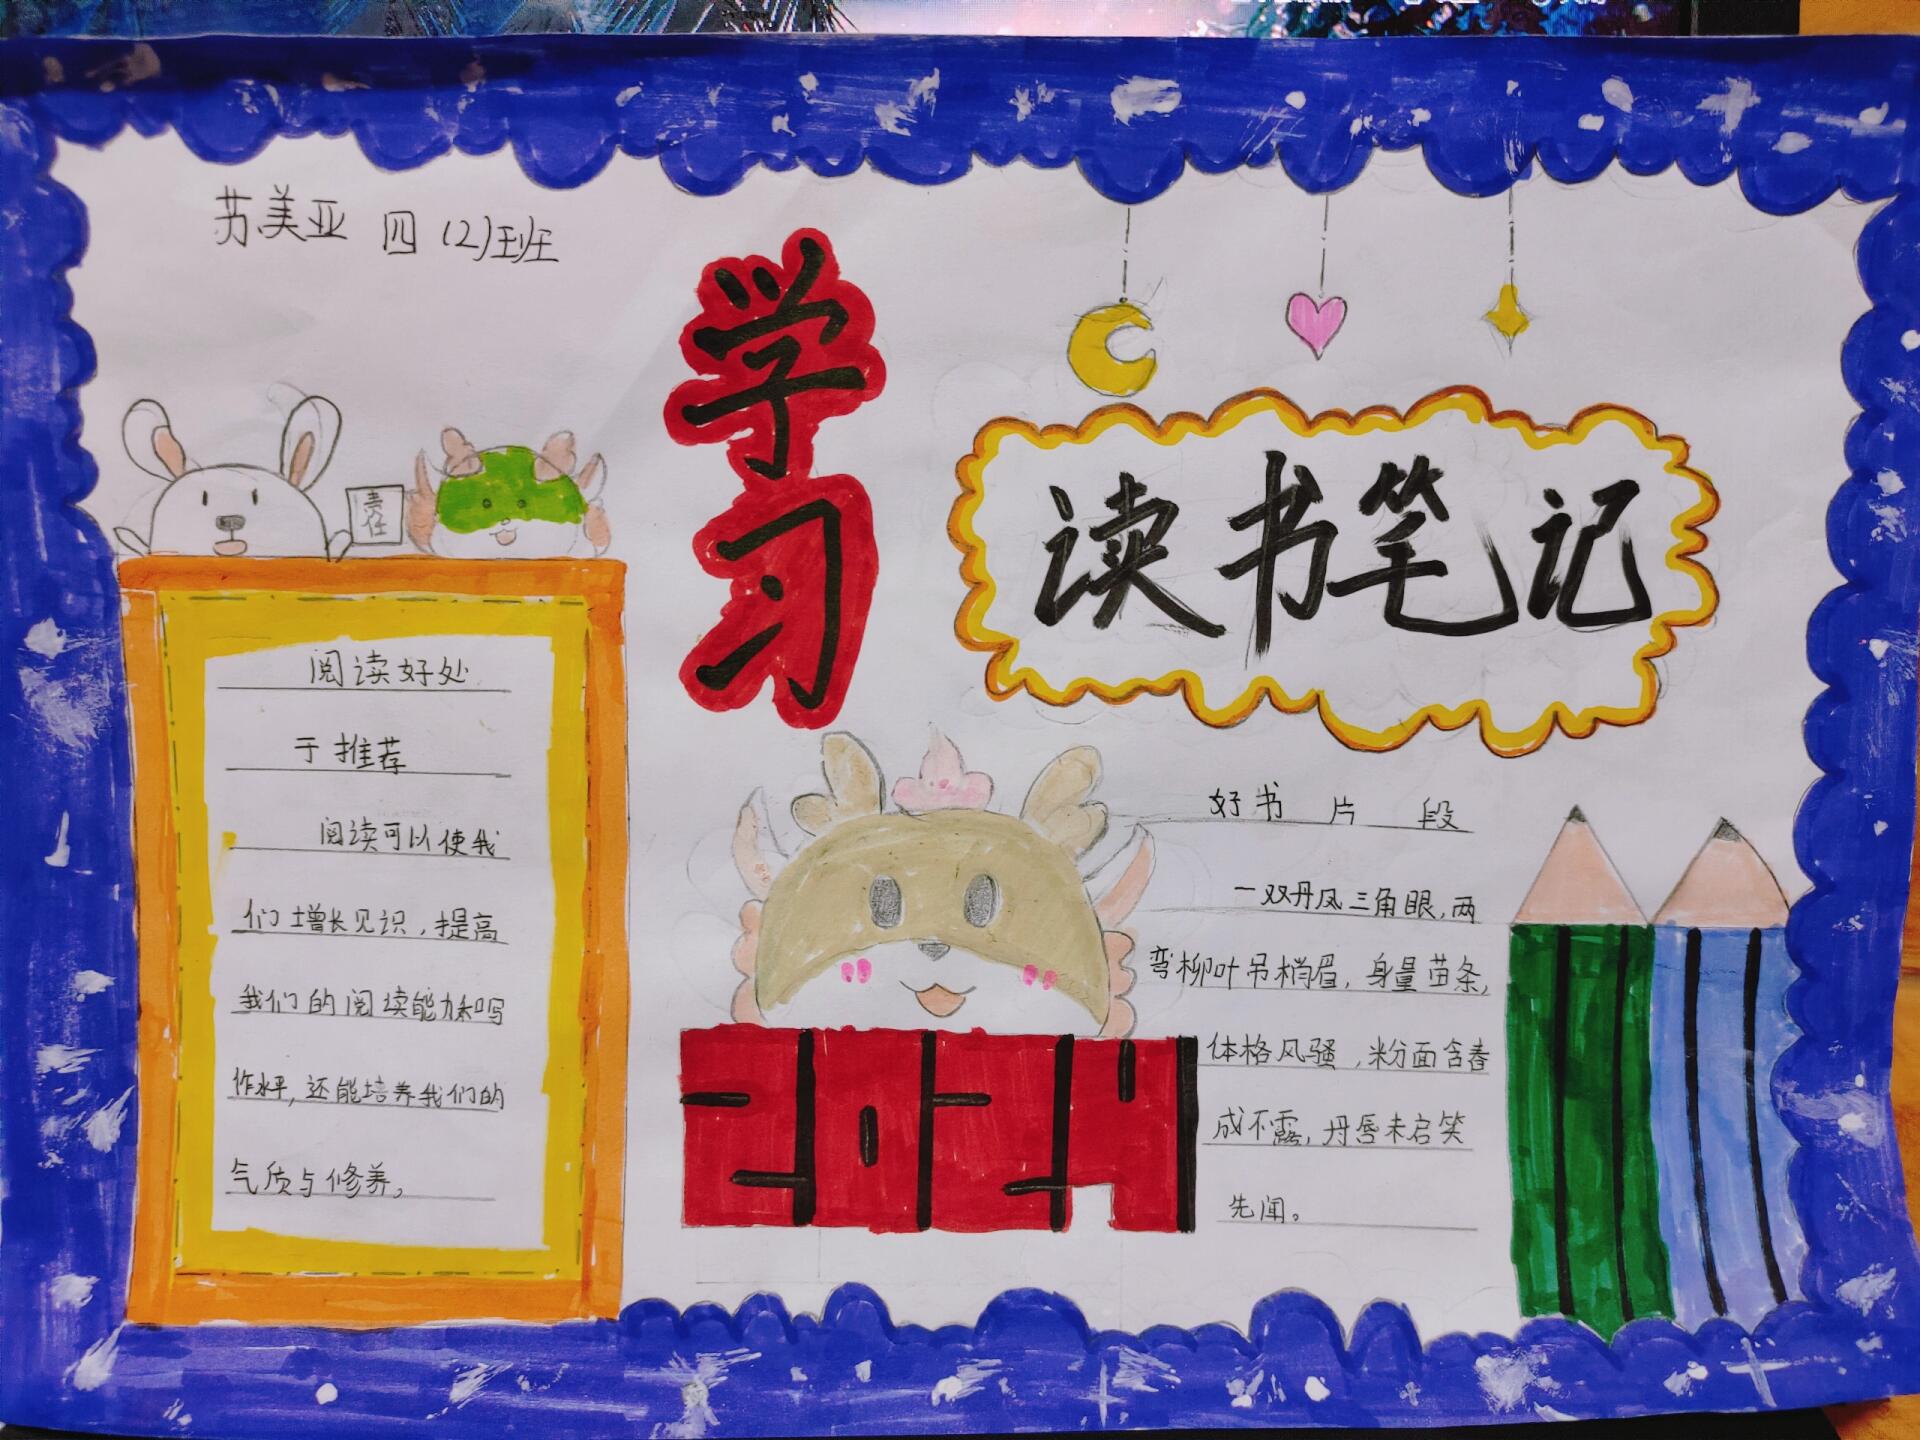 苏美亚 四(2)班
学习
读书笔记
责任
阅读好处
于推荐
阅读可以使我
们增长见识,提高
我们的阅读能力和写
作水平,还能培养我们的
气质与修养。
2024
好书 片 段
一双丹凤三角眼,两
弯柳叶吊梢眉,身量苗条,
体格风骚,粉面含春
成不露,丹唇未启笑
先闻。